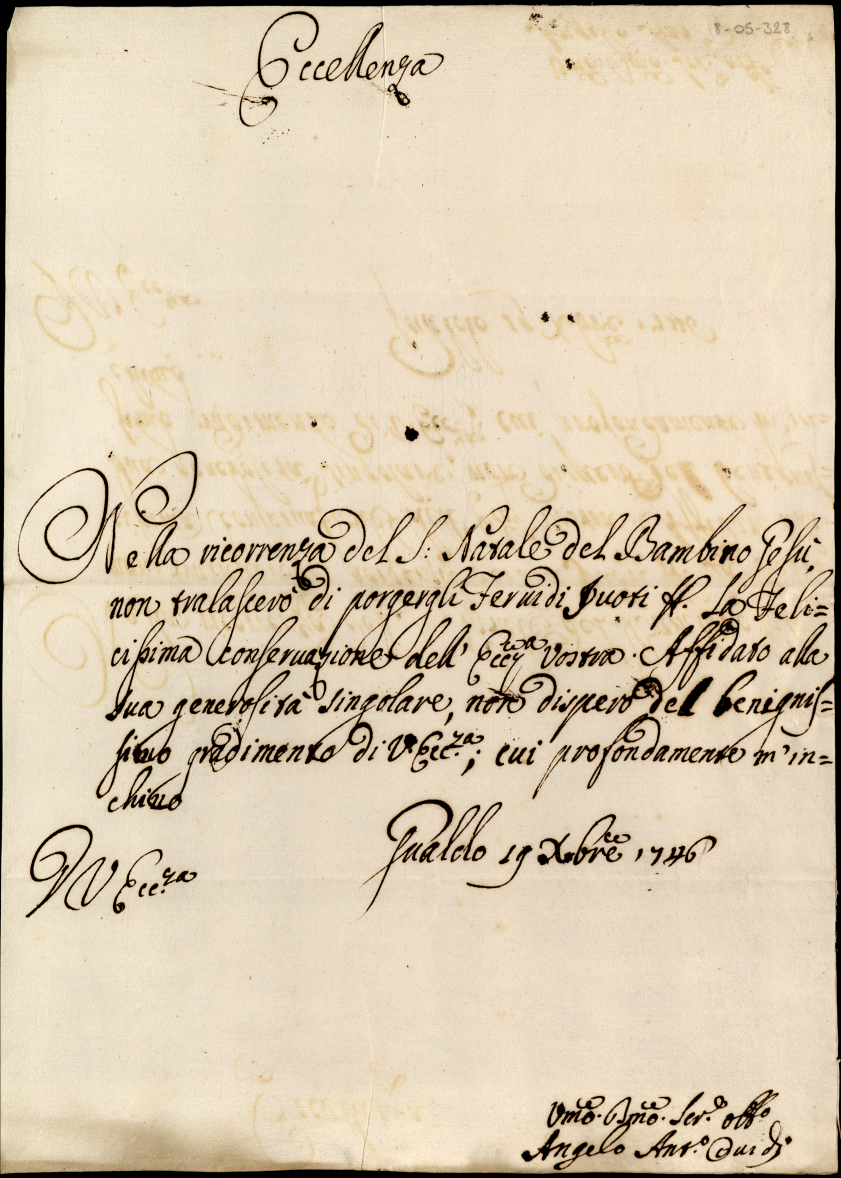 8-05-328
Eccellenza
Nella ricorrenza del S: Natale del Bambino Gesù,
non tralascerò di porgergli Feruidi Vuoti la Feli=
cissima conseruazione dell' Ecc.za Vostra. Affidato alla
sua generosità singolare, non dispero del benignis=
simo gradimento di V. Ecc.za; cui profondamente m'in=
chino
Gualdo 19 Xbre 1746
D V Ecc.za
Vmo. Dmo. Ser.e obb.o
Angelo Ant.o